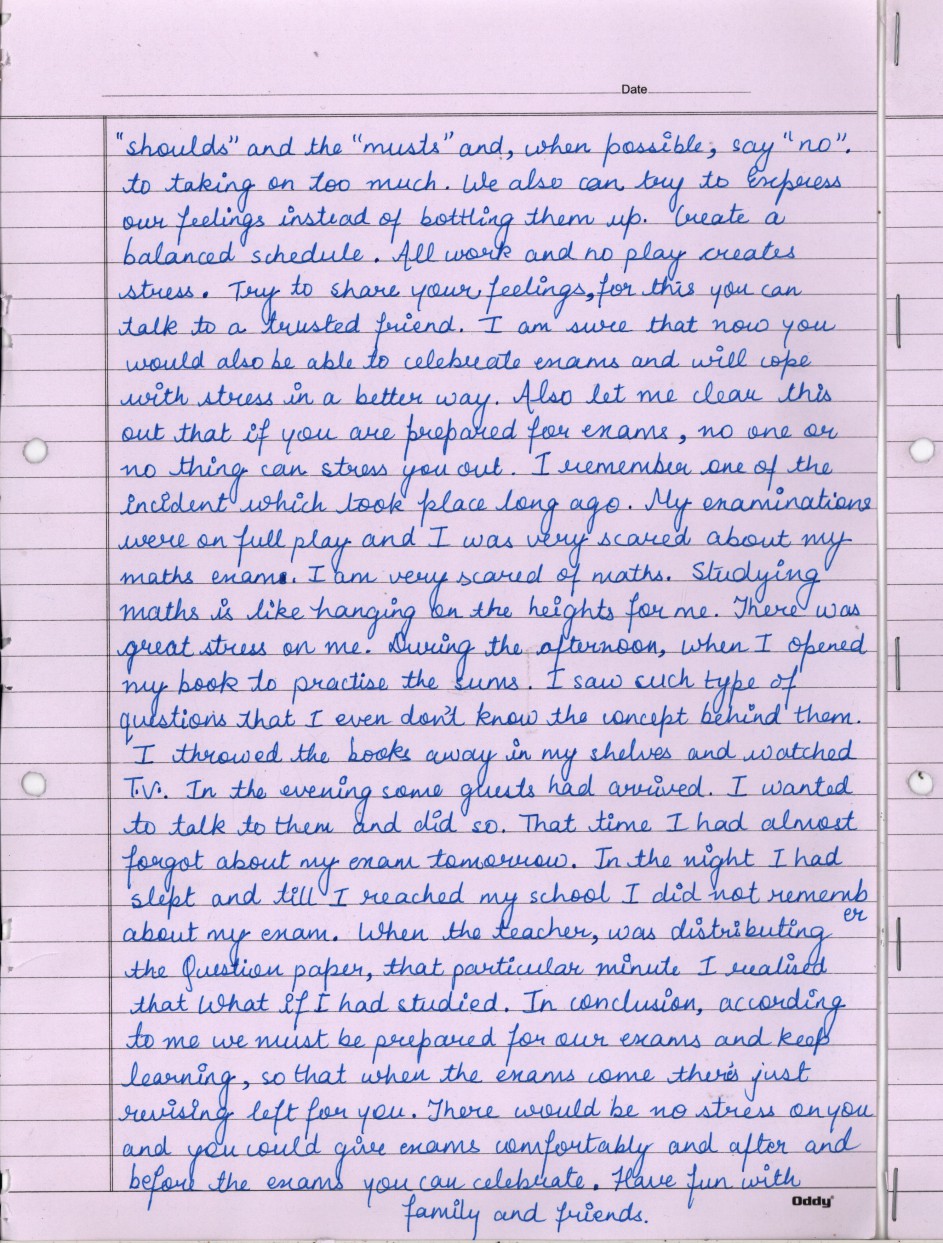 Date
"shoulds" and the "musts" and, when possible, say "no".
to taking on too much. We also can try to Express
our feelings instead of bottling them up. Create a
balanced schedule. All work and no play creates
stress. Try to share your feelings, for this you can
talk to a trusted friend. I am sure that now you
would also be able to celebrate exams and will cope
with stress in a better way. Also let me clear this
out that if you are prepared for exams, no one or
no thing can stress you out. I remember one of the
incident which took place long ago. My examinations
were on full play and I was very scared about my
maths exam. I am very scared of maths. Studying
maths is like hanging on the heights for me. There was
great stress on me. During the afternoon, when I opened
my book to practise the sums. I saw such type of
questions that I even don't know the concept behind them.
I throwed the books away in my shelves and watched
T.V. In the evening some guests had arrived. I wanted
to talk to them and did so. That time I had almost
forgot about my exam tomorrow. In the night I had
slept and till I reached my school I did not rememb
er
about my exam. When the teacher, was distributing
the Question paper, that particular minute I realised
that What if I had studied. In conclusion, according
to me we must be prepared for our exams and keep
learning, so that when the exams come there's just
revising left for you. There would be no stress on you
and you could give exams comfortably and after and
before the exams you can celebrate. Have fun with
family and friends.
Oddy